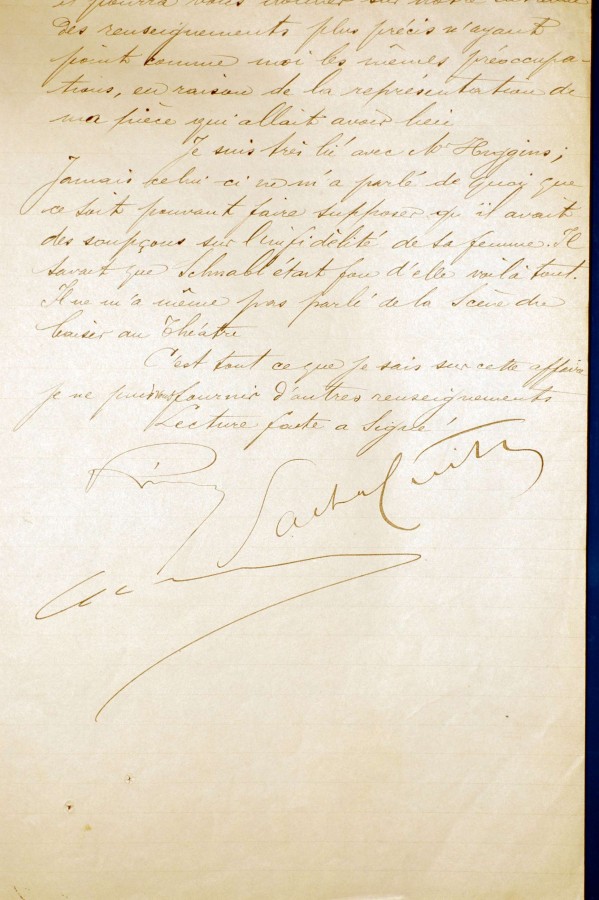 il pourra vous donner sur notre
des renseignements plus précis n'ayant
point comme moi les mêmes préoccupa-
tions, en raison de la représentation de
ma pièce qui allait avoir lieu
Je suis très lié avec Mr Huggins;
Jamais celui ci ne m'a parlé de quoi que
ce soit pouvant faire supposer qu'il avait
des soupçons sur l'infidélité de sa femme. Il
savait que Schnabl était fou d'elle voilà tout.
Il ne m'a même pas parlé de la Scène du
baiser au Théâtre
C'est tout ce que je sais sur cette affaire
je ne puis fournir d'autres renseignements
Lecture faite a Signé
Sacha Guitry